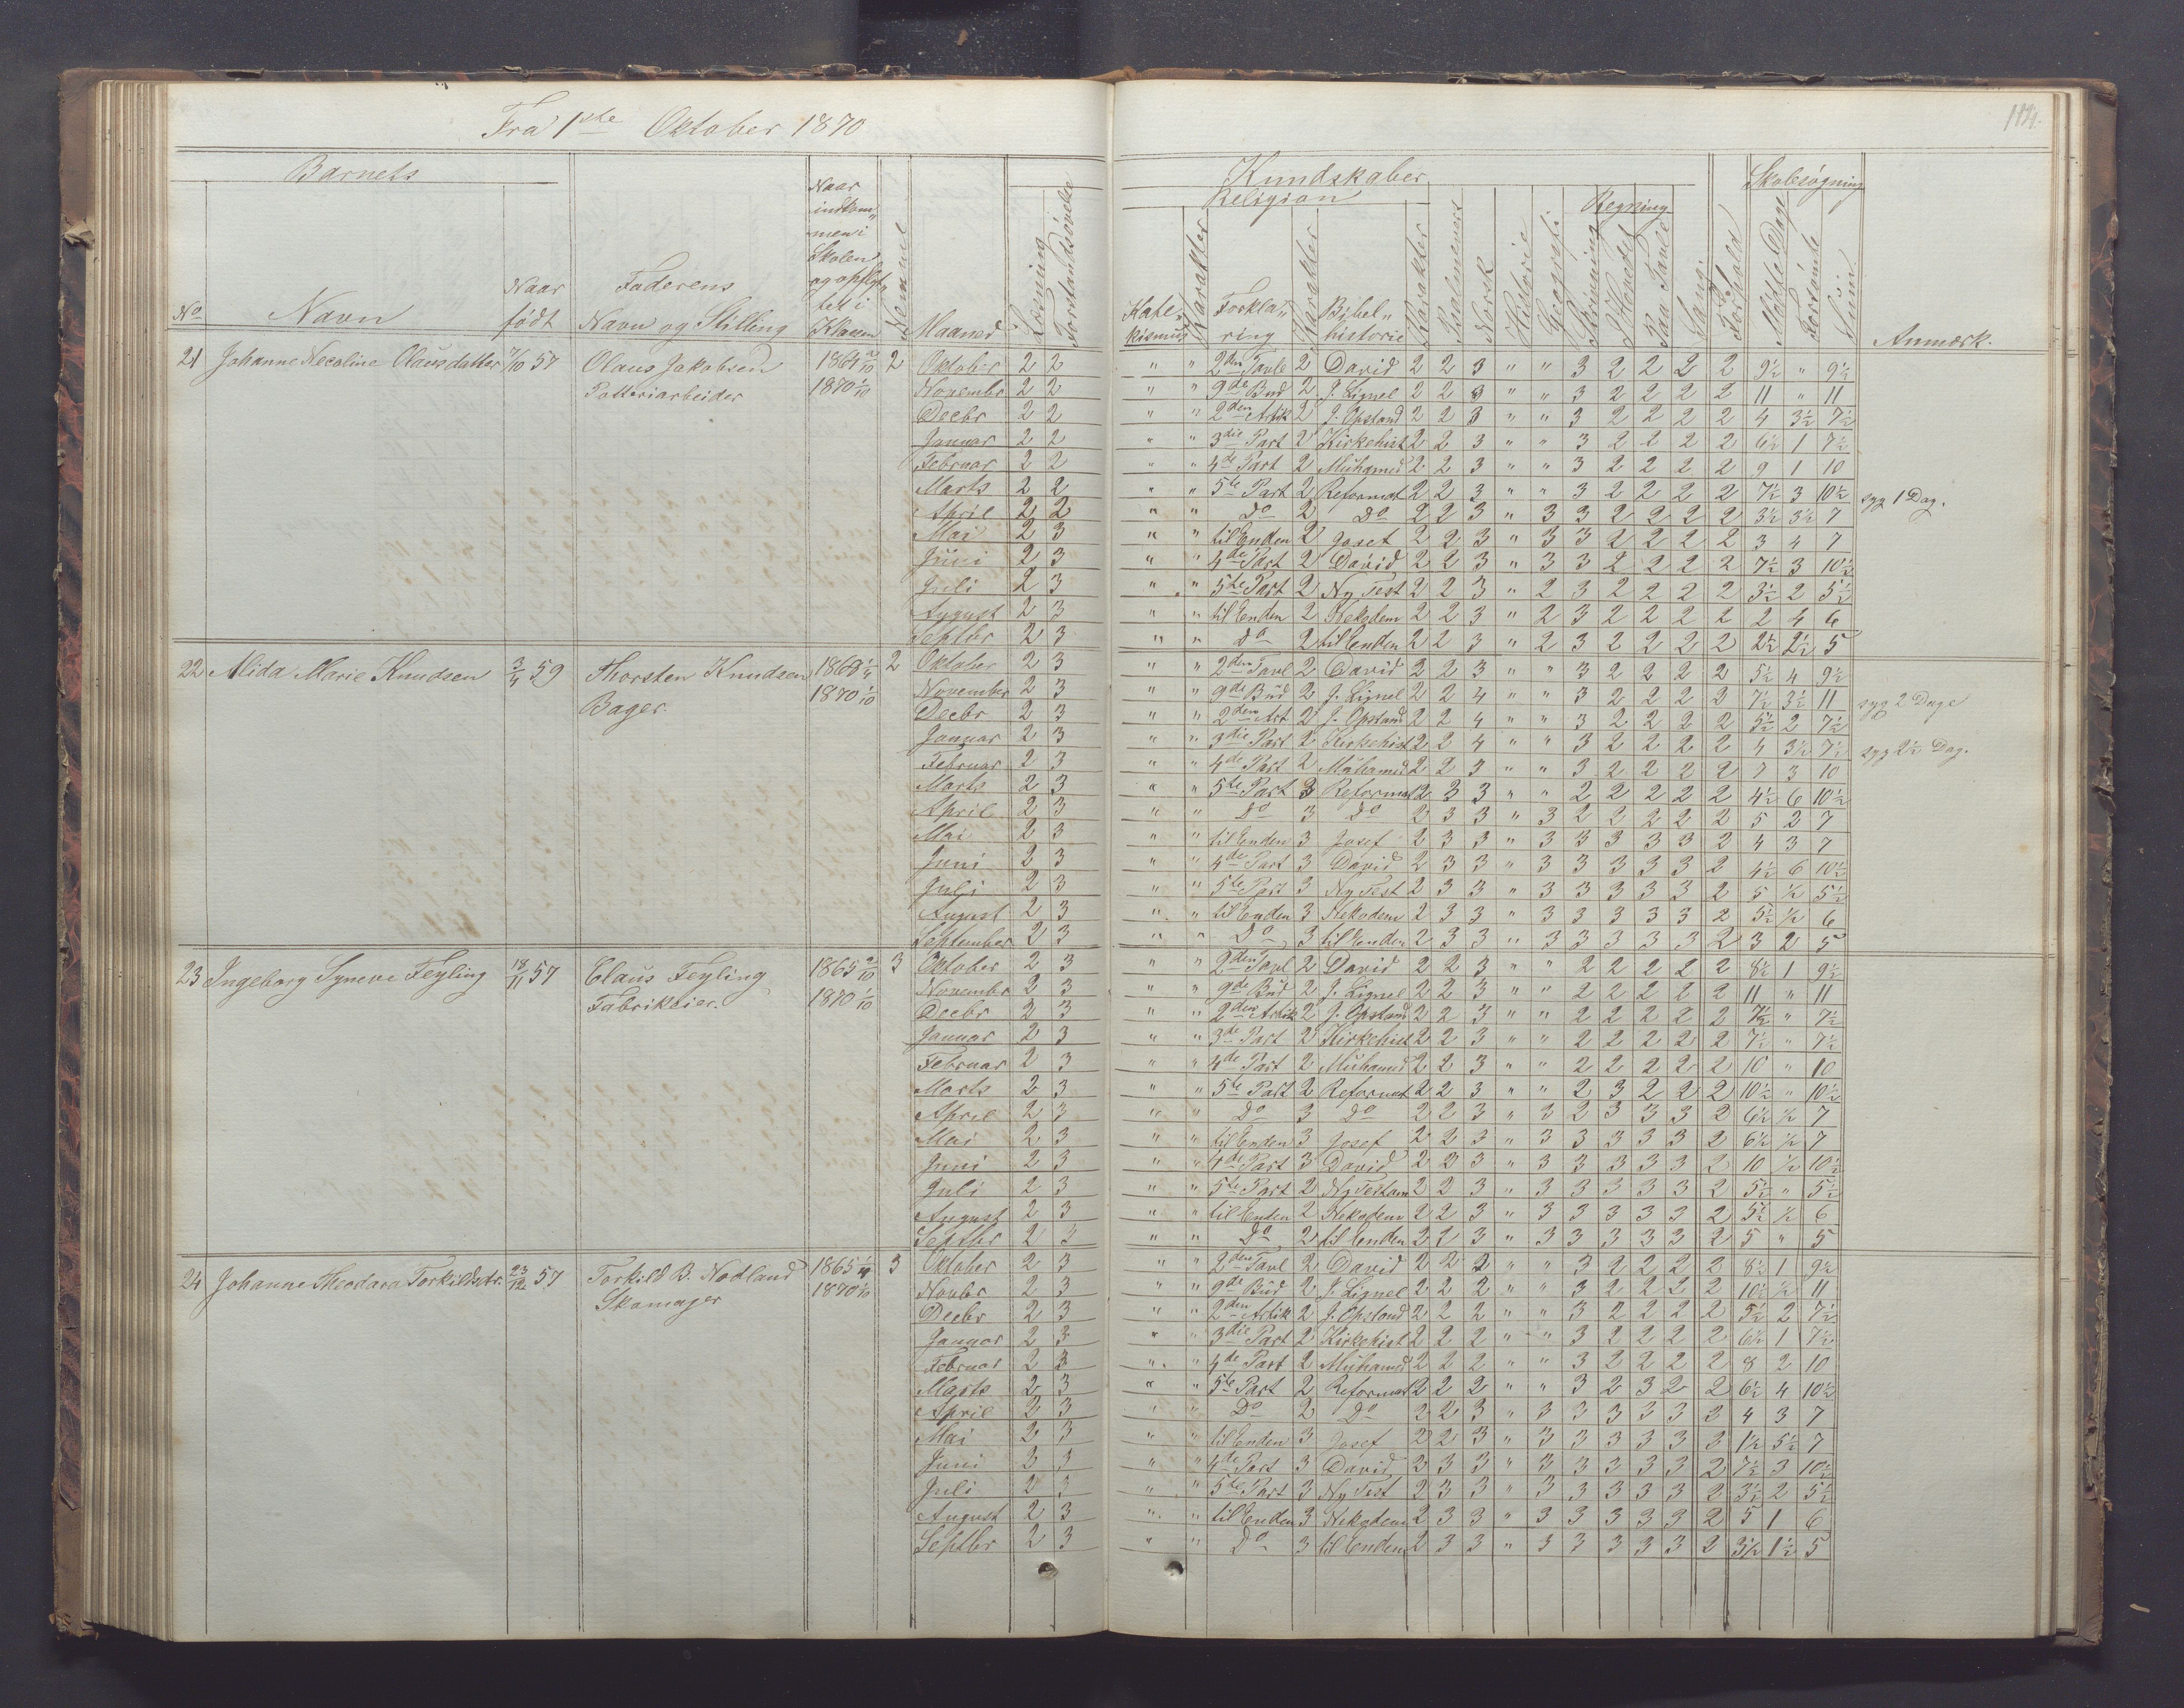 Fra 1ste Oktober 1870
114.
Barnets
Kundskaber
Skolesøgning
Religion
Regning
No Navn Naar født Faderens Navn og Stilling Naar indkommen i Skolen og opflyttet i Klassen Maaned Læsning Forstandsøvelse
Katekismus Karakter Forklaring Karakter Bibelhistorie Karakter Psalmevers Norsk Historie Geografi Skrivning I Hovedet Paa Tavle Sang Forhold Mødte Dage Forsømte Summ Anmærk.
21 Johanne Necoline Olausdatter 7/10 57 Olaus Jakobsen 1864 2 Oktober 2 2 " " 2den Tavle 2 David 2 2 3 " " 3 2 2 2 2 9½ " 9½
Potteriarbeider 1870 1/10 November 2 2 " " 9de Bud 2 J. Lignel 2 2 3 " " 3 2 2 2 2 11 " 11
Decbr 2 2 " " 2den Artik 2 J. Opstand 2 2 3 " " 3 2 2 2 2 4 3½ 7½
Januar 2 2 " " 3die Part 2 Kirkehist 2 2 3 " " 3 2 2 2 2 6½ 1 7½
Februar 2 2 " " 4de Part 2 Muhamed 2 2 3 " " 3 2 2 2 2 9 1 10
Marts 2 2 " " 5te Part 2 Reformat 2 2 3 " " 3 2 2 2 2 7½ 3 10½ syg 1 Dag.
April 2 2 " " Do 2 Do 2 2 3 " 3 3 2 2 2 2 3½ 3½ 7
Mai 2 3 " " til Enden 2 Josef 2 2 3 " 3 3 2 2 2 2 3 4 7
Juni 2 3 " " 4de Part 2 David 2 2 3 " 3 3 2 2 2 2 7½ 3 10½
Juli 2 3 " " 5te Part 2 Ny Test 2 2 3 " 2 3 2 2 2 2 3½ 2 5½
August 2 3 " " til Enden 2 Nekodem 2 2 3 " 2 3 2 2 2 2 2 4 6
Septbr 2 3 " " Do 2 til Enden 2 2 3 " 2 3 2 2 2 2 2½ 2½ 5
22 Alida Marie Knudsen 3/4 59 Thorsten Knudsen 1868 2 Oktober 2 3 " " 2den Tavl 2 David 2 2 3 " " 3 2 2 2 2 5½ 4 9½
Bager 1870 1/10 November 2 3 " " 9de Bud 2 J. Lignel 2 2 4 " " 3 2 2 2 2 7½ 3½ 11 syg 2 Dage
Decbr 2 3 " " 2den Art 2 J. Opstand 2 2 4 " " 3 2 2 2 2 5½ 2 7½
Januar 2 3 " " 3die Part 2 Kirkehist 2 2 4 " " 3 2 2 2 2 4 3½ 7½ syg 2½ Dag.
Februar 2 3 " " 4de Part 2 Muhamed 2 2 3 " " 3 2 2 2 2 7 3 10
Marts 2 3 " " 5te Part 3 Reformat 2 3 3 " " 2 2 2 2 2 4½ 6 10½
April 2 3 " " Do 3 Do 2 3 3 " 3 2 2 2 2 2 5 2 7
Mai 2 3 " " til Enden 3 Josef 2 3 3 " 3 3 3 3 3 2 4 3 7
Juni 2 3 " " 4de Part 3 David 2 3 3 " 3 3 3 3 3 2 4½ 6 10½
Juli 2 3 " " 5te Part 3 Ny Test 2 3 3 " 3 3 3 3 3 2 5 ½ 5½
August 2 3 " " til Enden 3 Nekodem 2 3 3 " 3 3 3 3 3 2 5½ ½ 6
September 2 3 " " Do 3 til Enden 2 3 3 " 3 3 3 3 3 2 3 2 5
23 Ingeborg Syneve Feyling 18/11 57 Claus Feyling 1865 3 Oktober 2 3 " " 2den Tavl 2 David 2 2 3 " " 2 2 2 2 2 8½ 1 9½
Fabrikeier. 1870 1/10 November 2 3 " " 9de Bud 2 J. Lignel 2 2 3 " " 2 2 2 2 2 11 " 11
Decbr 2 3 " " 2den Artik 2 J. Opstand 2 2 3 " " 2 2 2 2 2 7½ " 7½
Januar 2 3 " " 3de Part 2 Kirkehist 2 2 3 " " 2 2 2 2 2 7½ " 7½
Februar 2 3 " " 4de Part 2 Muhamed 2 2 3 " " 2 2 2 2 2 10 " 10
Marts 2 3 " " 5te Part 2 Reformat 2 2 3 " " 2 3 2 2 2 10½ " 10½
April 2 3 " " Do 3 Do 2 2 3 " 3 2 3 3 3 2 6½ ½ 7
Mai 2 3 " " til Enden 3 Josef 2 2 3 " 3 3 3 3 3 2 6½ ½ 7
Juni 2 3 " " 4de Part 3 David 2 2 3 " 3 3 3 3 3 2 10 ½ 10½
Juli 2 3 " " 5te Part 2 Ny Testam 2 2 3 " 3 3 3 3 3 2 5½ " 5½
August 2 3 " " til Enden 2 Nekodem 2 2 3 " 3 3 3 3 3 2 5½ ½ 6
Septbr 2 3 " " Do 2 til Enden 2 2 3 " 3 3 3 3 3 2 5 " 5
24 Johanne Theodora Torkildsdtr. 23/12 57 Torkild B. Nodland 1865 3 Oktober 2 3 " " 2den Tavl 2 David 2 2 2 " " 3 2 2 2 2 8½ 1 9½
Skomager 1870 1/10 Novbr 2 3 " " 9de Bud 2 J. Lignel 2 2 2 " " 3 2 2 2 2 10½ ½ 11
Decbr 2 3 " " 2den Artik 2 J. Opstand 2 2 2 " " 3 2 2 2 2 5½ 2 7½
Januar 2 3 " " 3die Part 2 Kirkehist 2 2 2 " " 3 2 2 2 2 6½ 1 7½
Februar 2 3 " " 4de Part 2 Muhamed 2 2 2 " " 3 2 2 2 2 8 2 10
Marts 2 3 " " 5te Part 2 Reformat 2 2 2 " " 3 2 3 2 2 6½ 4 10½
April 2 3 " " Do 2 Do 2 2 3 " 3 3 3 3 3 2 4 3 7
Mai 2 3 " " til Enden 3 Josef 2 2 3 " 3 3 3 3 3 2 1½ 5½ 7
Juni 2 3 " " 4de Part 3 David 2 3 3 " 3 3 3 3 3 2 7½ 3 10½
Juli 2 3 " " 5te Part 3 Ny Test 2 3 3 " 3 3 3 3 3 2 3½ 2 5½
August 2 3 " " til Enden 3 Nekodem 2 3 3 " 3 3 3 3 3 2 5 1 6
Septbr 2 3 " " Do 3 til Enden 2 3 3 " 3 3 3 3 3 2 3½ 1½ 5